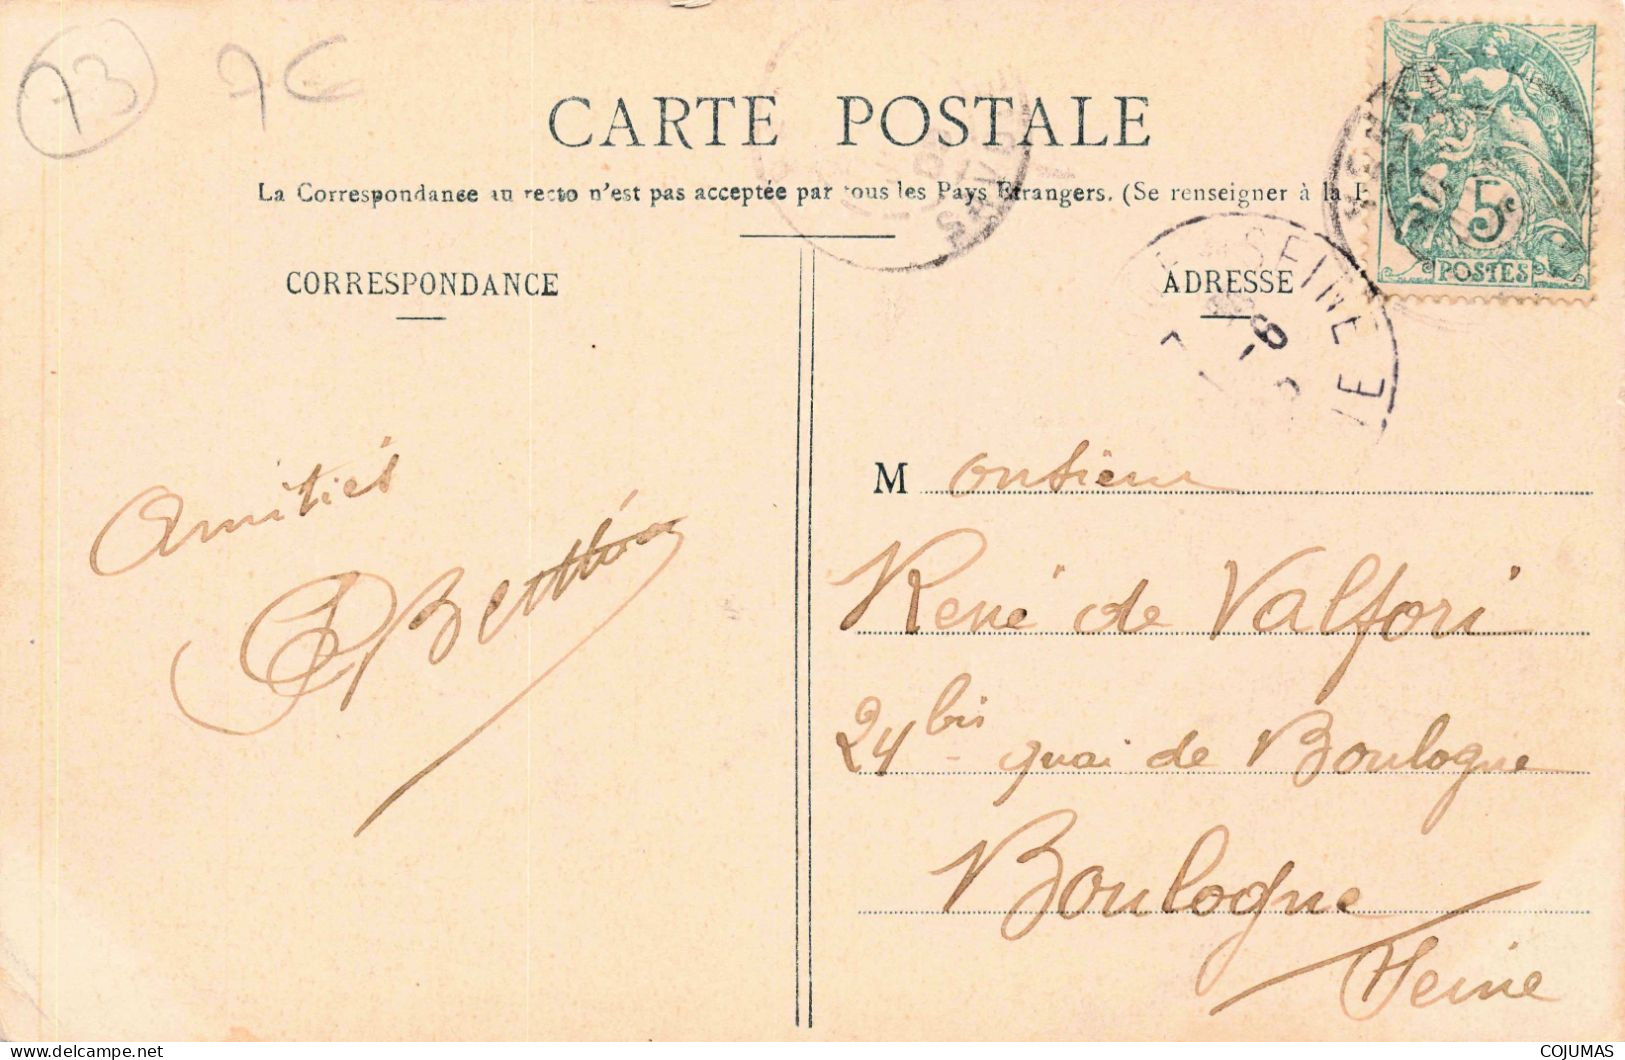 73
7€
CARTE POSTALE
La Correspondance au recto n'est pas acceptée par tous les Pays Etrangers. (Se renseigner à la
CORRESPONDANCE
ADRESSE
5c
POSTES
SEINE
Amitiés
Monsieur
René de Valfori
24 bis quai de Boulogne
Boulogne
Seine
delcampe.net
COJUMAS